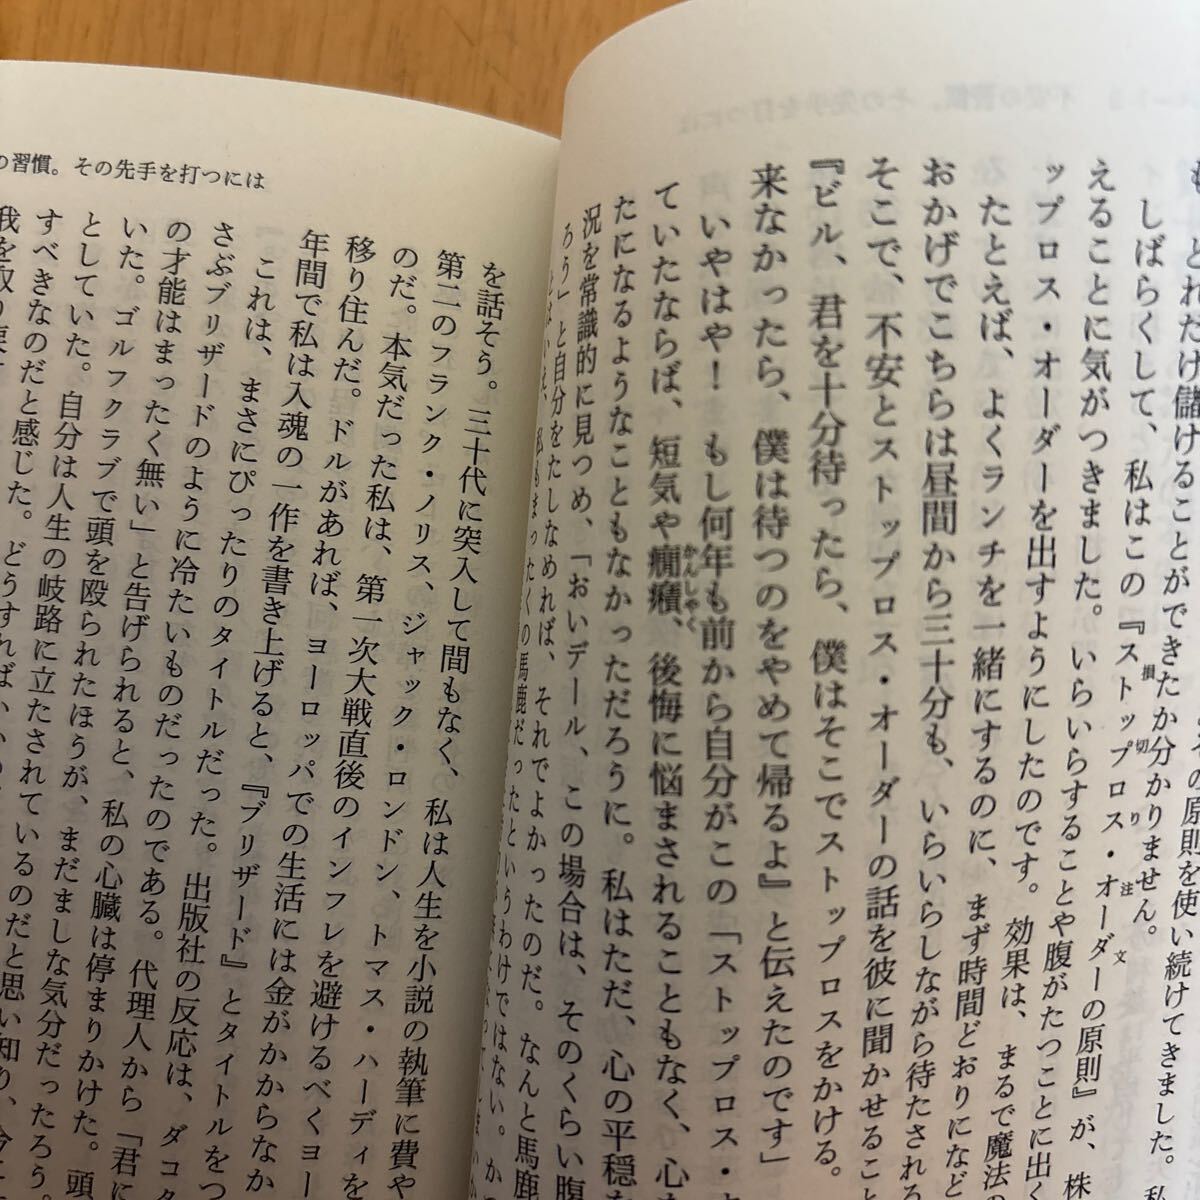 も、どれだけ儲けることができたか分かりません。
しばらくして、私はこの『ストップロス・オーダーの原則』が、株
えることに気がつきました。いらいらすることや腹がたつことに出く
ップロス・オーダーを出すようにしたのです。効果は、まるで魔法の
たとえば、よくランチを一緒にするのに、まず時間どおりになど
おかげでこちらは昼間から三十分も、いらいらしながら待たされる
そこで、不安とストップロス・オーダーの話を彼に聞かせること
『ビル、君を十分待ったら、僕はそこでストップロスをかける。
来なかったら、僕は待つのをやめて帰るよ』と伝えたのです」
いやはや！ もし何年も前から自分がこの「ストップロス・オ
ていたならば、短気や癇癪、後悔に悩まされることもなく、心
たになるようなこともなかっただろうに。私はただ、心の平穏
況を常識的に見つめ、「おいデール、この場合は、そのくらい腹
ろう」と自分をたしなめれば、それでよかったのだ。なんと馬鹿
私もまったくの馬鹿だったというわけではない。か
の習慣。その先手を打つには
を話そう。三十代に突入して間もなく、私は人生を小説の執筆に費や
第二のフランク・ノリス、ジャック・ロンドン、トマス・ハーディを
のだ。本気だった私は、第一次大戦直後のインフレを避けるべくヨー
移り住んだ。ドルがあれば、ヨーロッパでの生活には金がかからなか
年間で私は入魂の一作を書き上げると、『ブリザード』とタイトルをつ
これは、まさにぴったりのタイトルだった。出版社の反応は、ダコタ
さぶブリザードのように冷たいものだったのである。代理人から「君に
の才能はまったく無い」と告げられると、私の心臓は停まりかけた。頭
いた。ゴルフクラブで頭を殴られたほうが、まだましな気分だったろう。
としていた。自分は人生の岐路に立たされているのだと思い知り、今こ
すべきなのだと感じた。どうすればいいの
我を取り戻す